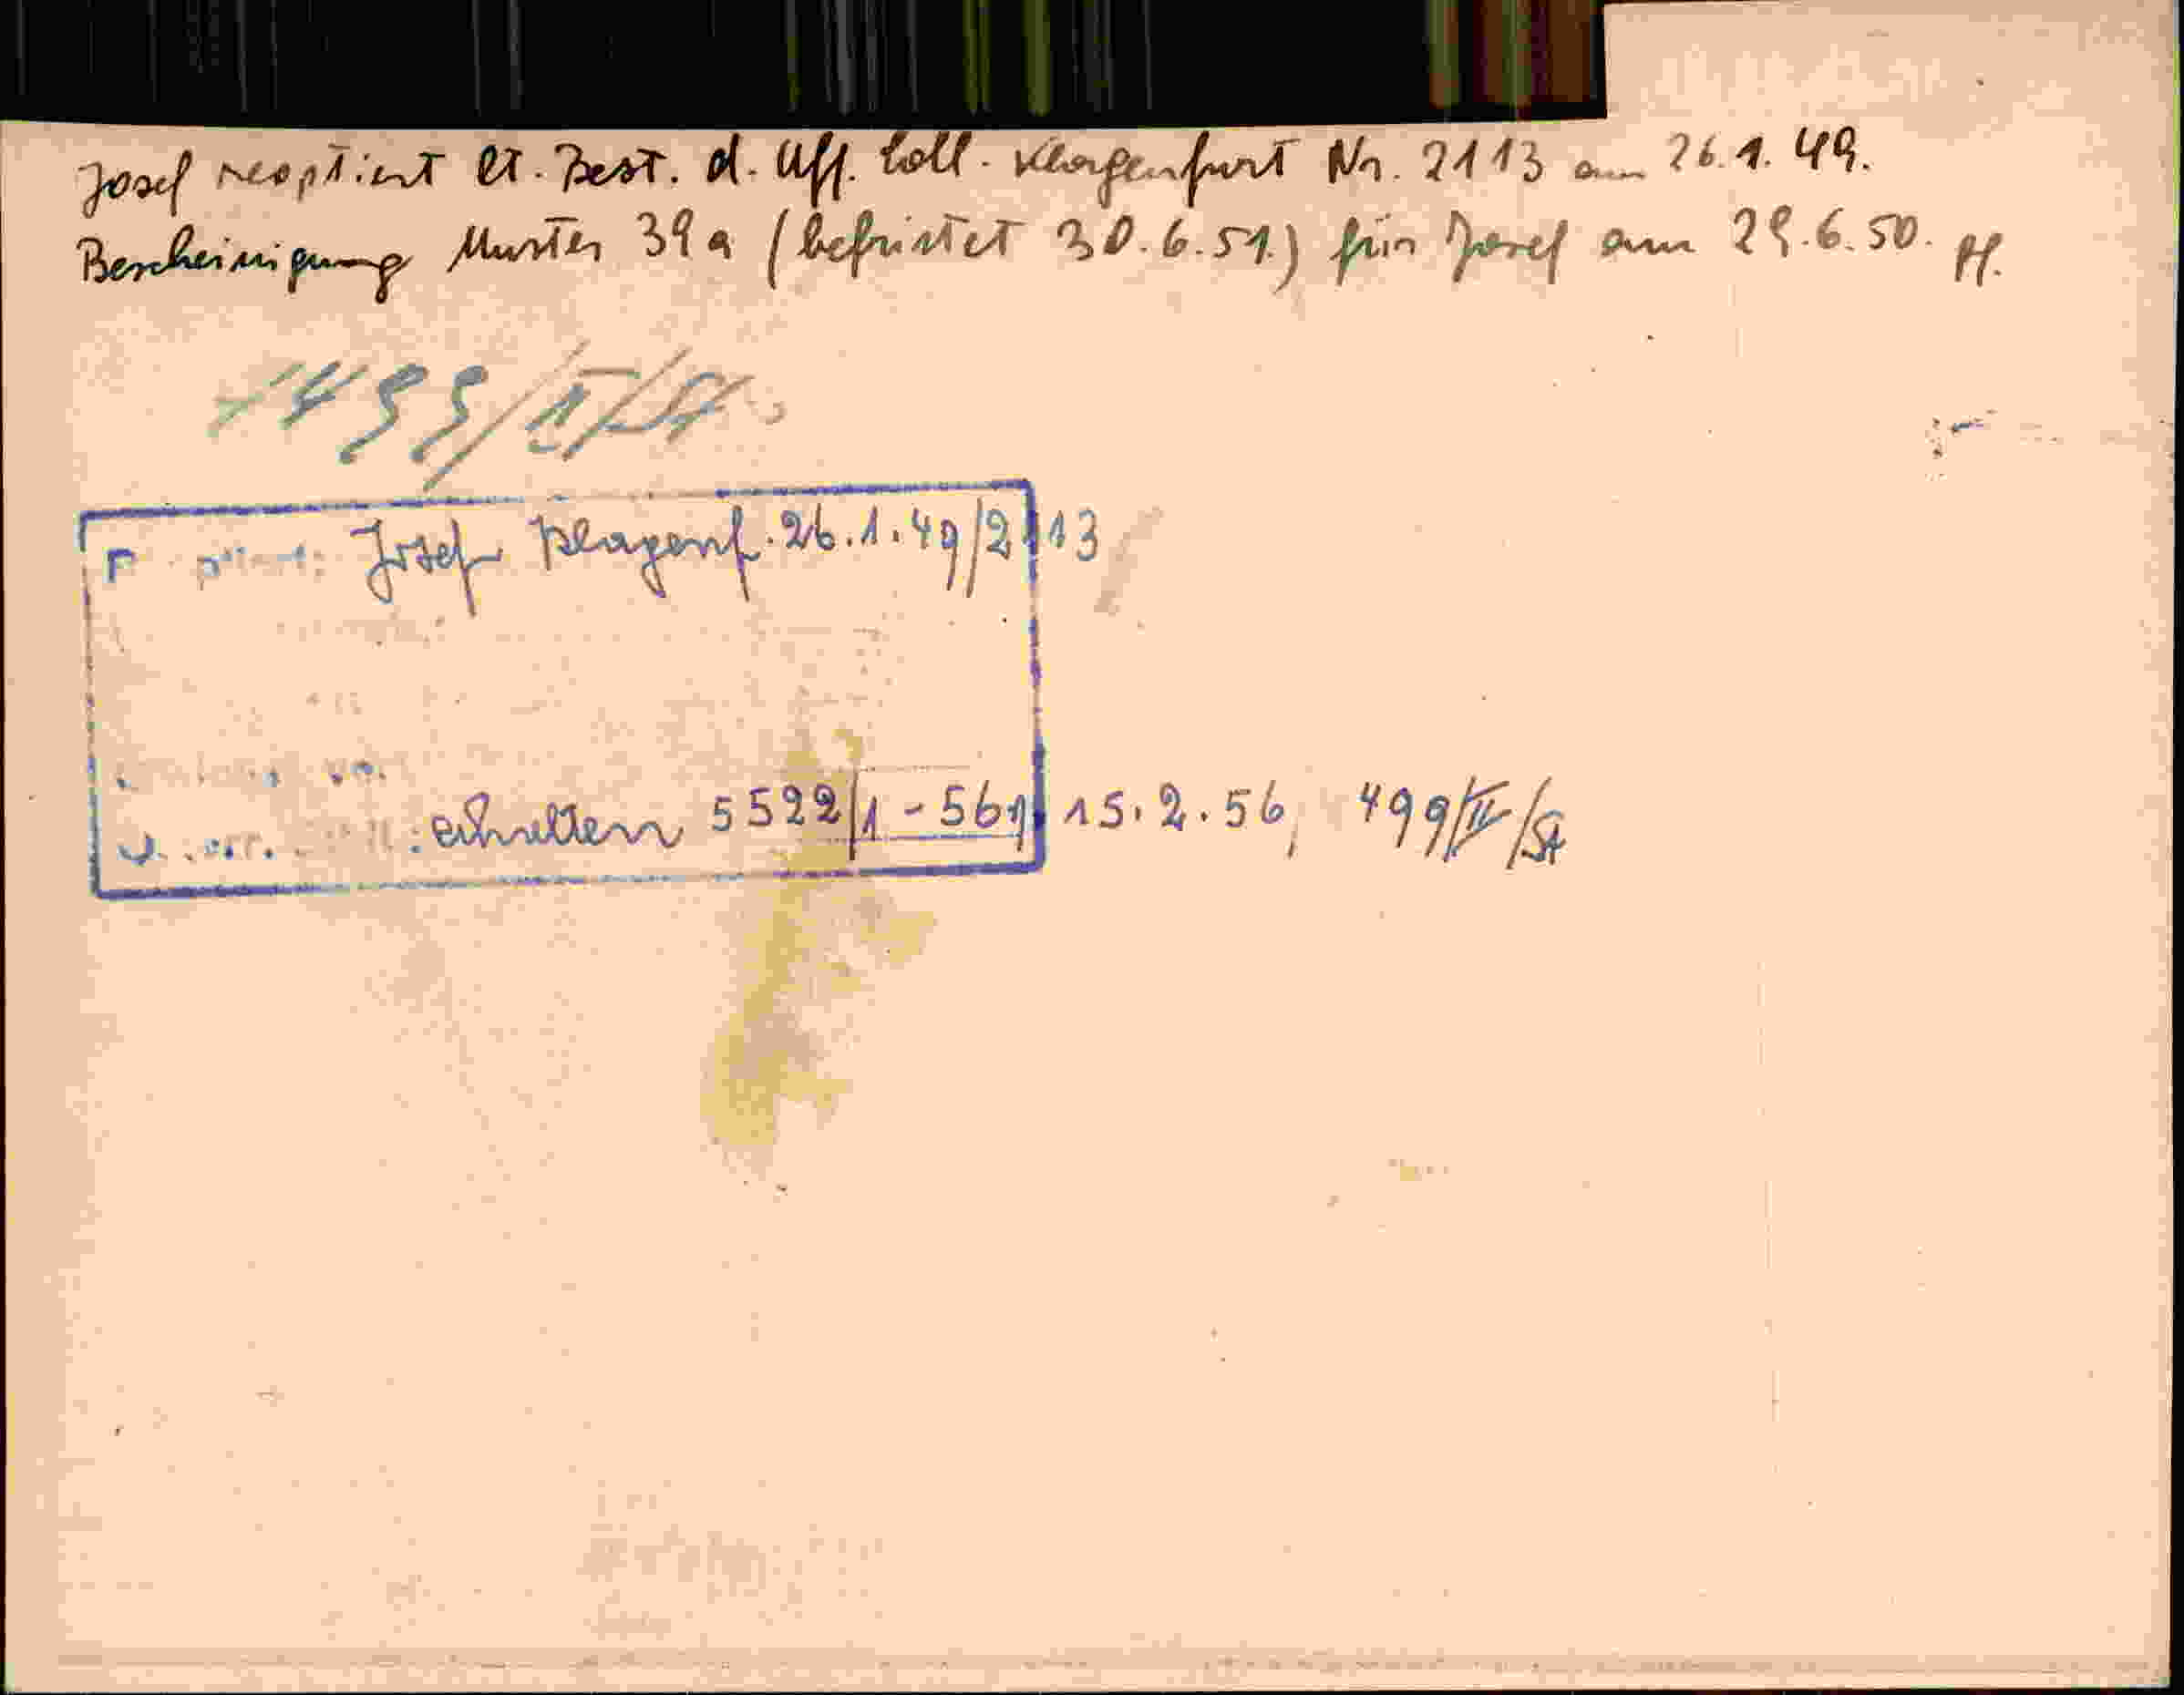 Josef reoptiert lt. Best. d. Uff. Coll. Klagenfurt Nr. 2113 am 26.1.49.
Bescheinigung Muster 39a (befristet 30.6.51.) für Josef am 29.6.50. Pf.
499/II/St
Josef Klagenf. 26.1.49/2113
: erhalten 5522/1-561 15.2.56, 499/II/St